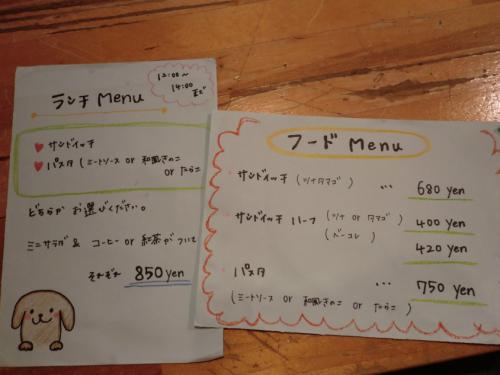 ランチ Menu
12:00～
14:00
まで
サンドイッチ
パスタ (ミートソース or 和風きのこ
or たらこ
どちらか お選びください。
ミニサラダ & コーヒー or 紅茶が ついて
それぞれ 850 yen
フード Menu
サンドイッチ (ツナタマゴ) ... 680 yen
サンドイッチ ハーフ (ツナ or タマゴ) 400 yen
(ベーコレ) 420 yen
パスタ ... 750 yen
(ミートソース or 和風きのこ or たらこ)